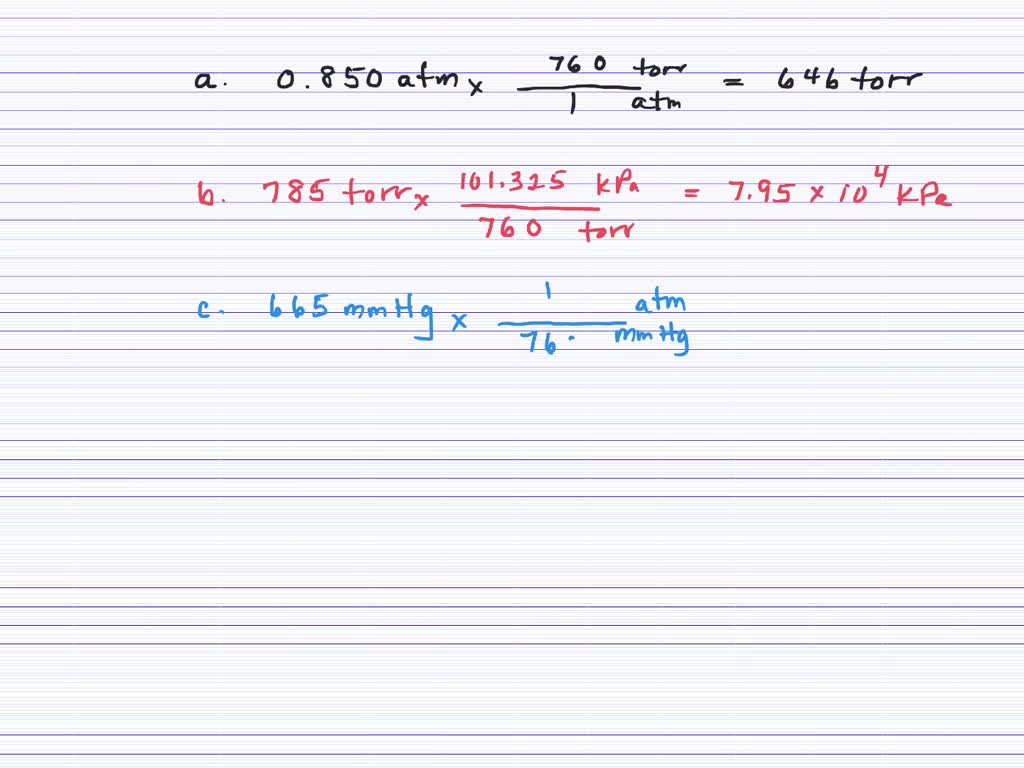 a. 0.850 atm x 760 torr / 1 atm = 646 torr
b. 785 torr x 101.325 kPa / 760 torr = 7.95 x 10^4 kPa
c. 665 mmHg x 1 atm / 76· mmHg